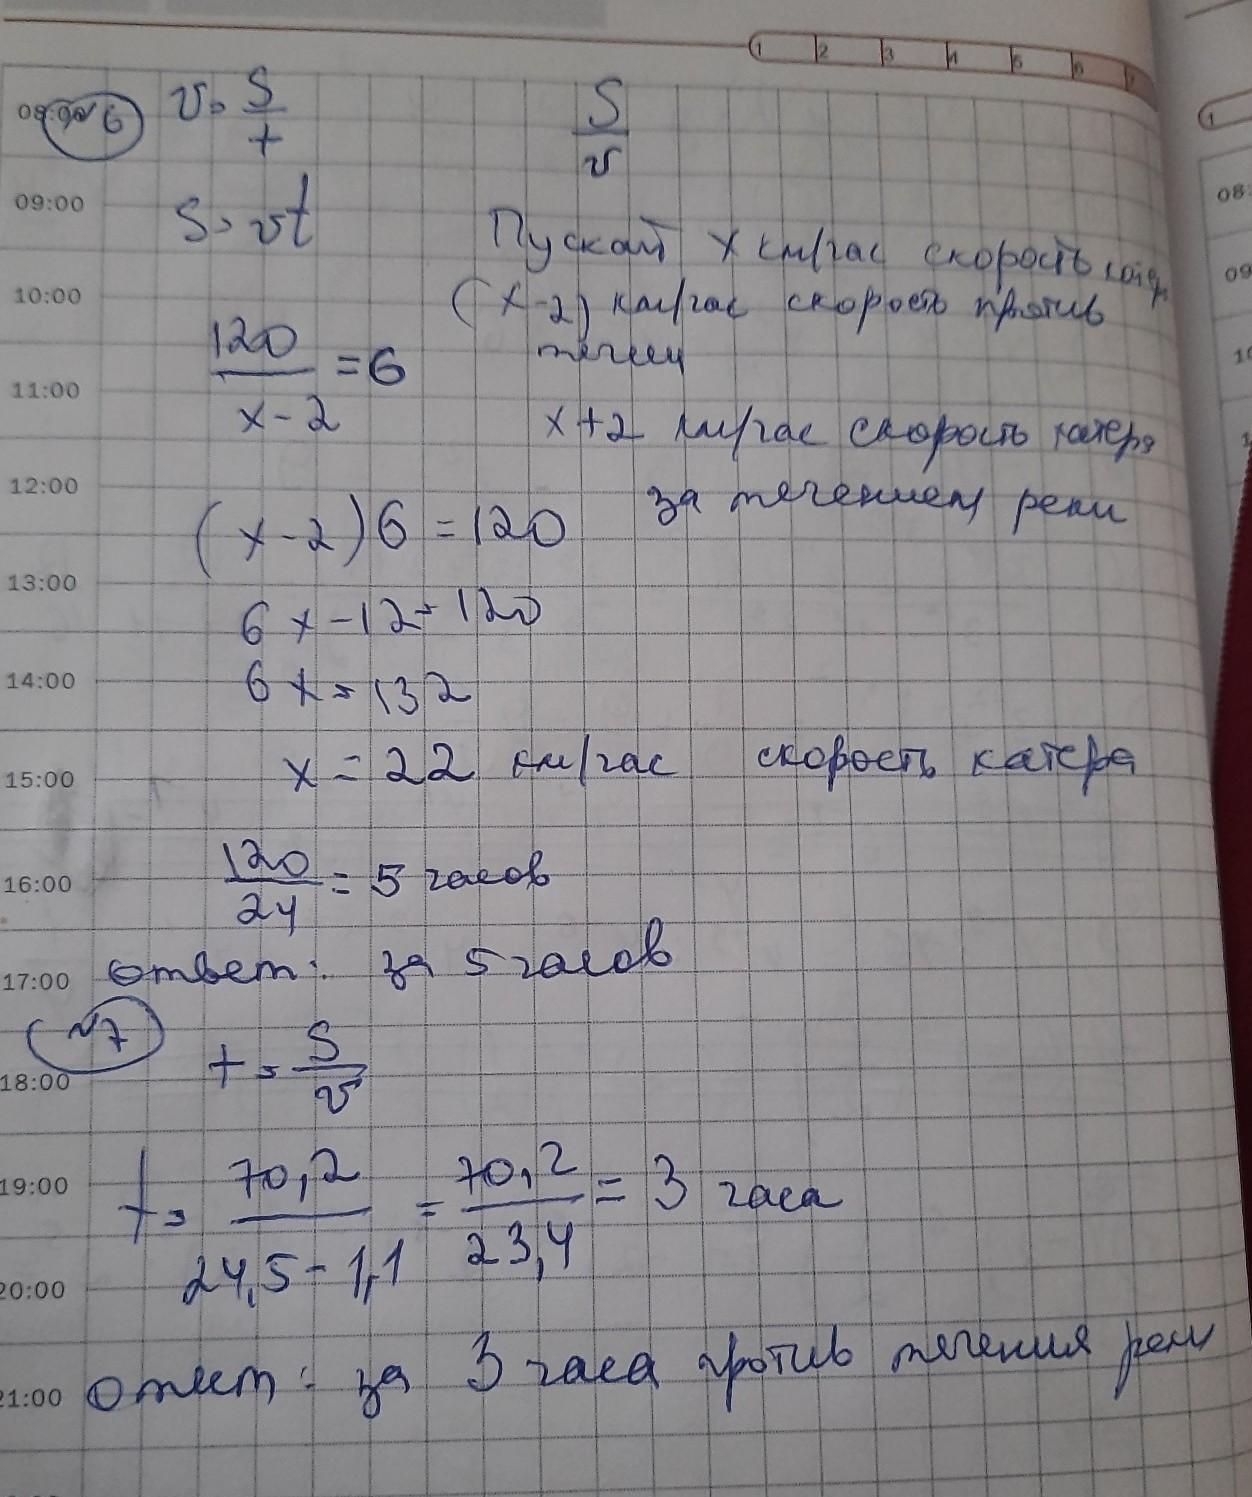 1 2 3 4 5 6 7
№6 v = S/t S/v
09:00
S = vt
Пускай x км/час скорость
10:00
(x-2) км/час скорость против
120/(x-2) = 6
11:00
x+2 км/час скорость катера
12:00
за течением реки
(x-2)6 = 120
13:00
6x-12=120
14:00
6x=132
x = 22 км/час скорость катера
15:00
120/24 = 5 часов
16:00
ответ: за 5 часов
17:00
№7
t = S/v
18:00
t = 70,2/(24,5-1,1) = 70,2/23,4 = 3 часа
19:00
20:00
ответ: за 3 часа против течения реки
21:00
1
08:
09
10